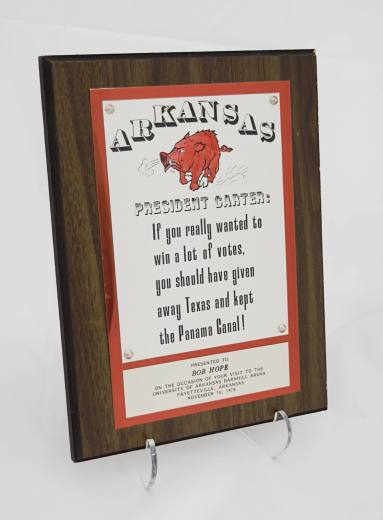 ARKANSAS
PRESIDENT CARTER:
If you really wanted to
win a lot of votes,
you should have given
away Texas and kept
the Panama Canal!
PRESENTED TO
BOB HOPE
ON THE OCCASION OF YOUR VISIT TO THE
UNIVERSITY OF ARKANSAS BARNHILL ARENA
FAYETTEVILLE, ARKANSAS
NOVEMBER 10, 1978